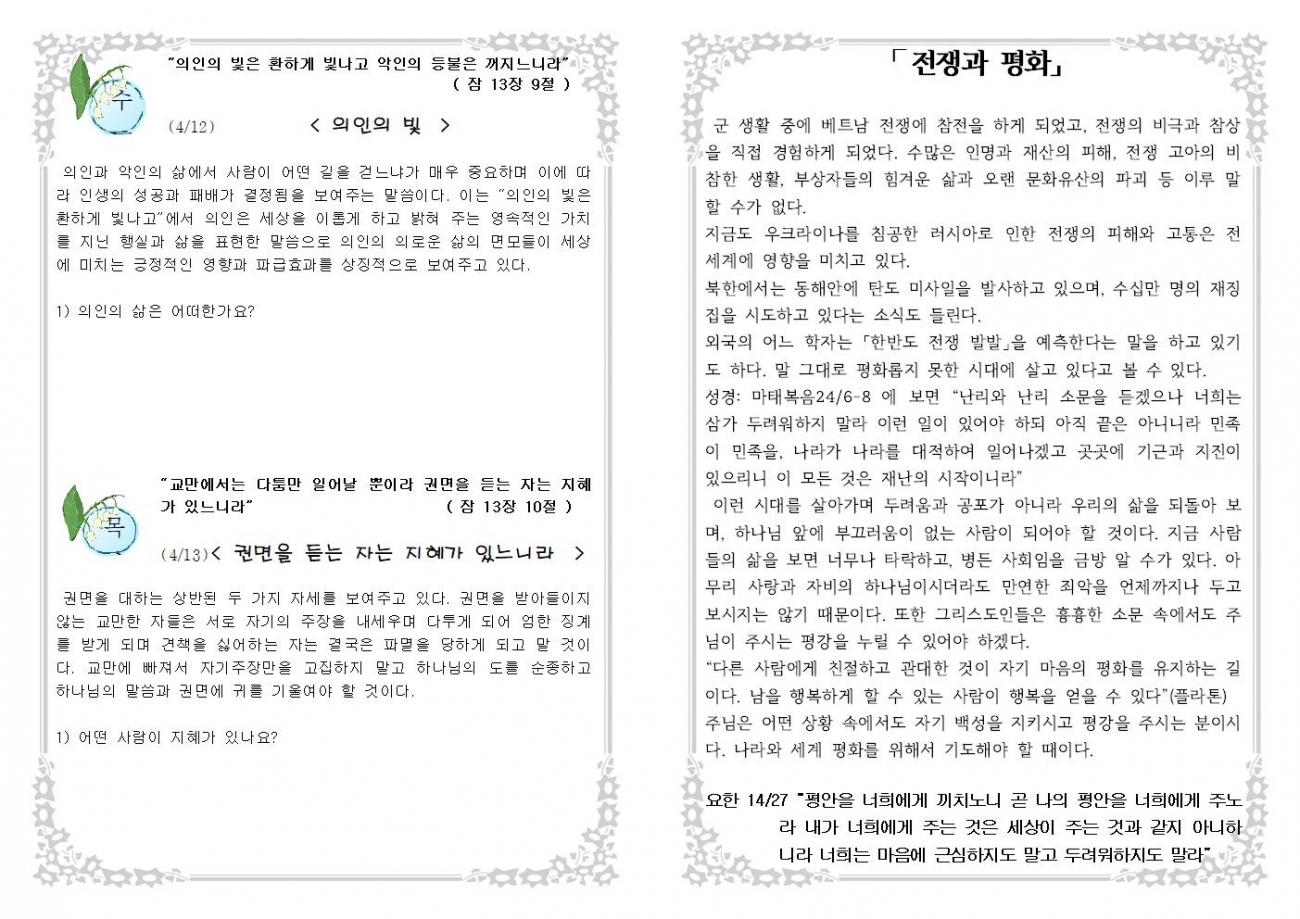 “의인의 빛은 환하게 빛나고 악인의 등불은 꺼지느니라”
( 잠 13장 9절 )
수
(4/12) < 의인의 빛 >
의인과 악인의 삶에서 사람이 어떤 길을 걷느냐가 매우 중요하며 이에 따
라 인생의 성공과 패배가 결정됨을 보여주는 말씀이다. 이는 “의인의 빛은
환하게 빛나고”에서 의인은 세상을 이롭게 하고 밝혀 주는 영속적인 가치
를 지닌 행실과 삶을 표현한 말씀으로 의인의 의로운 삶의 면모들이 세상
에 미치는 긍정적인 영향과 파급효과를 상징적으로 보여주고 있다.
1) 의인의 삶은 어떠한가요?
“교만에서는 다툼만 일어날 뿐이라 권면을 듣는 자는 지혜
가 있느니라” ( 잠 13장 10절 )
목
(4/13)< 권면을 듣는 자는 지혜가 있느니라 >
권면을 대하는 상반된 두 가지 자세를 보여주고 있다. 권면을 받아들이지
않는 교만한 자들은 서로 자기의 주장을 내세우며 다투게 되어 엄한 징계
를 받게 되며 견책을 싫어하는 자는 결국은 파멸을 당하게 되고 말 것이
다. 교만에 빠져서 자기주장만을 고집하지 말고 하나님의 도를 순종하고
하나님의 말씀과 권면에 귀를 기울여야 할 것이다.
1) 어떤 사람이 지혜가 있나요?
「 전쟁과 평화」
군 생활 중에 베트남 전쟁에 참전을 하게 되었고, 전쟁의 비극과 참상
을 직접 경험하게 되었다. 수많은 인명과 재산의 피해, 전쟁 고아의 비
참한 생활, 부상자들의 힘겨운 삶과 오랜 문화유산의 파괴 등 이루 말
할 수가 없다.
지금도 우크라이나를 침공한 러시아로 인한 전쟁의 피해와 고통은 전
세계에 영향을 미치고 있다.
북한에서는 동해안에 탄도 미사일을 발사하고 있으며, 수십만 명의 재징
집을 시도하고 있다는 소식도 들린다.
외국의 어느 학자는 「한반도 전쟁 발발」을 예측한다는 말을 하고 있기
도 하다. 말 그대로 평화롭지 못한 시대에 살고 있다고 볼 수 있다.
성경: 마태복음24/6-8 에 보면 “난리와 난리 소문을 듣겠으나 너희는
삼가 두려워하지 말라 이런 일이 있어야 하되 아직 끝은 아니니라 민족
이 민족을, 나라가 나라를 대적하여 일어나겠고 곳곳에 기근과 지진이
있으리니 이 모든 것은 재난의 시작이니라”
이런 시대를 살아가며 두려움과 공포가 아니라 우리의 삶을 되돌아 보
며, 하나님 앞에 부끄러움이 없는 사람이 되어야 할 것이다. 지금 사람
들의 삶을 보면 너무나 타락하고, 병든 사회임을 금방 알 수가 있다. 아
무리 사랑과 자비의 하나님이시더라도 만연한 죄악을 언제까지나 두고
보시지는 않기 때문이다. 또한 그리스도인들은 흉흉한 소문 속에서도 주
님이 주시는 평강을 누릴 수 있어야 하겠다.
“다른 사람에게 친절하고 관대한 것이 자기 마음의 평화를 유지하는 길
이다. 남을 행복하게 할 수 있는 사람이 행복을 얻을 수 있다”(플라톤)
주님은 어떤 상황 속에서도 자기 백성을 지키시고 평강을 주시는 분이시
다. 나라와 세계 평화를 위해서 기도해야 할 때이다.
요한 14/27 "평안을 너희에게 끼치노니 곧 나의 평안을 너희에게 주노
라 내가 너희에게 주는 것은 세상이 주는 것과 같지 아니하
니라 너희는 마음에 근심하지도 말고 두려워하지도 말라"